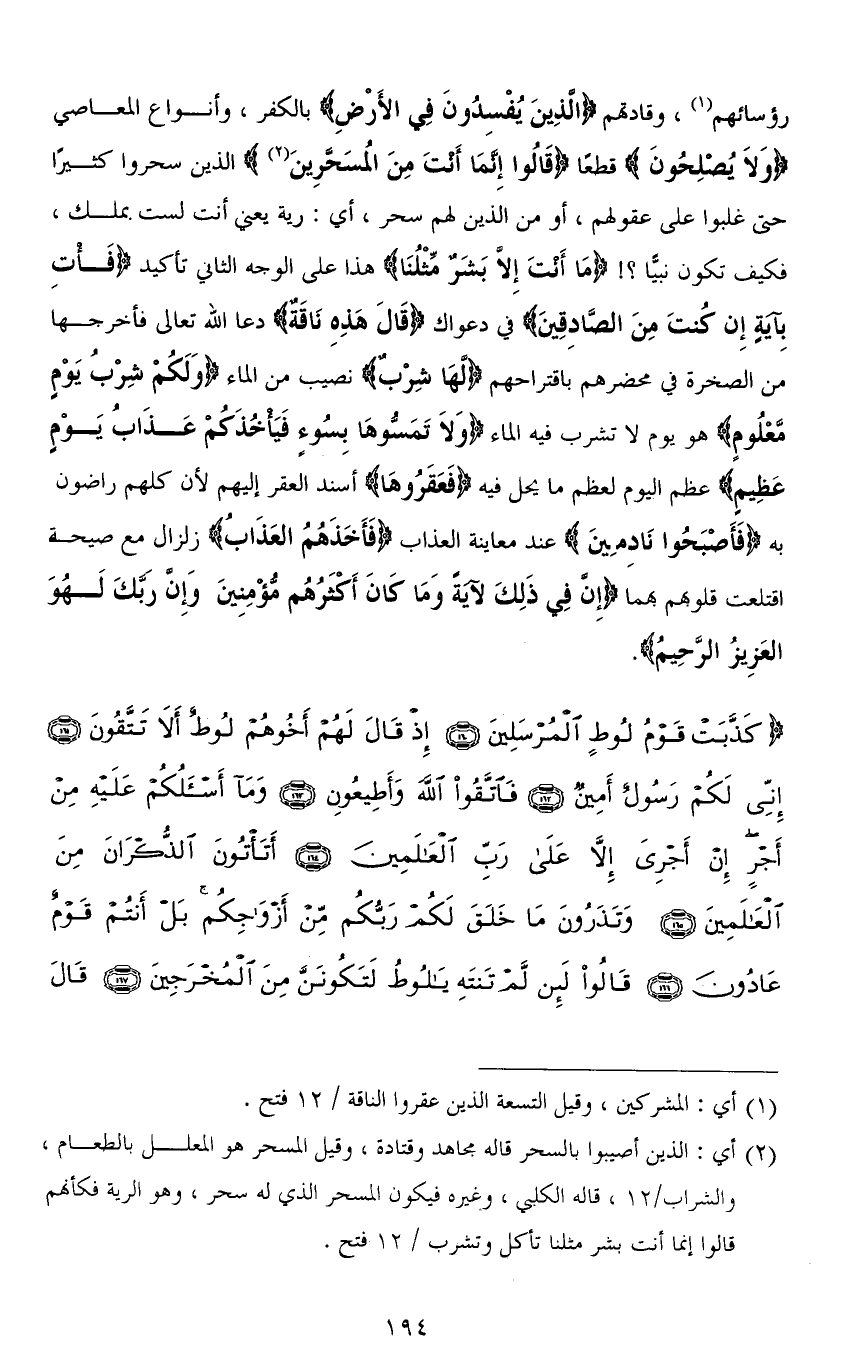 رؤسائهم(١) ، وقادتهم ﴿الَّذِينَ يُفْسِدُونَ فِي الأَرْضِ﴾ بالكفر ، وأنـــواع المعـــاصي
﴿وَلاَ يُصْلِحُونَ﴾ قطعًا ﴿قَالُوا إِنَّمَا أَنْتَ مِنَ الْمُسَحَّرِينَ(٢)﴾ الذين سحروا كثـــيرًا
حتى غلبوا على عقولهم ، أو من الذين لهم سحر ، أي : رية يعني أنت لست بملـــك ،
فكيف تكون نبيًّا ؟! ﴿مَا أَنْتَ إِلاَّ بَشَرٌ مِّثْلُنَا﴾ هذا على الوجه الثاني تأكيد ﴿فَـــأْتِ
بِآيَةٍ إِن كُنتَ مِنَ الصَّادِقِينَ﴾ في دعواك ﴿قَالَ هَذِهِ نَاقَةٌ﴾ دعا الله تعالى فأخرجـــها
من الصخرة في محضرهم باقتراحهم ﴿لَّهَا شِرْبٌ﴾ نصيب من الماء ﴿وَلَكُمْ شِرْبُ يَوْمٍ
مَّعْلُومٍ﴾ هو يوم لا تشرب فيه الماء ﴿وَلاَ تَمَسُّوهَا بِسُوءٍ فَيَأْخُذَكُمْ عَـــذَابُ يَـــوْمٍ
عَظِيمٍ﴾ عظم اليوم لعظم ما يحل فيه ﴿فَعَقَرُوهَا﴾ أسند العقر إليهم لأن كلهم راضون
به ﴿فَأَصْبَحُوا نَادِمِينَ﴾ عند معاينة العذاب ﴿فَأَخَذَهُمُ العَذَابُ﴾ زلزال مع صيحـــة
اقتلعت قلوبهم بهما ﴿إِنَّ فِي ذَلِكَ لآيَةً وَمَا كَانَ أَكْثَرُهُم مُّؤْمِنِينَ وَإِنَّ رَبَّكَ لَـــهُوَ
العَزِيزُ الرَّحِيمُ﴾.
﴿كَذَّبَتْ قَوْمُ لُوطٍ ٱلْمُرْسَلِينَ ١٦٠ إِذْ قَالَ لَهُمْ أَخُوهُمْ لُوطٌ أَلَا تَتَّقُونَ ١٦١
إِنِّى لَكُمْ رَسُولٌ أَمِينٌ ١٦٢ فَٱتَّقُوا۟ ٱللَّهَ وَأَطِيعُونِ ١٦٣ وَمَآ أَسْـَٔلُكُمْ عَلَيْهِ مِنْ
أَجْرٍ ۖ إِنْ أَجْرِىَ إِلَّا عَلَىٰ رَبِّ ٱلْعَـٰلَمِينَ ١٦٤ أَتَأْتُونَ ٱلذُّكْرَانَ مِنَ
ٱلْعَـٰلَمِينَ ١٦٥ وَتَذَرُونَ مَا خَلَقَ لَكُمْ رَبُّكُم مِّنْ أَزْوَٰجِكُم ۚ بَلْ أَنتُمْ قَوْمٌ
عَادُونَ ١٦٦ قَالُوا۟ لَئِن لَّمْ تَنتَهِ يَـٰلُوطُ لَتَكُونَنَّ مِنَ ٱلْمُخْرَجِينَ ١٦٧ قَالَ
(١) أي : المشركين ، وقيل التسعة الذين عقروا الناقة / ١٢ فتح .
(٢) أي : الذين أصيبوا بالسحر قاله مجاهد وقتادة ، وقيل المسحر هو المعلـــل بالطعـــام ،
والشراب/١٢ ، قاله الكلبي ، وغيره فيكون المسحر الذي له سحر ، وهو الرية فكأنهم
قالوا إنما أنت بشر مثلنا تأكل وتشرب / ١٢ فتح .
١٩٤